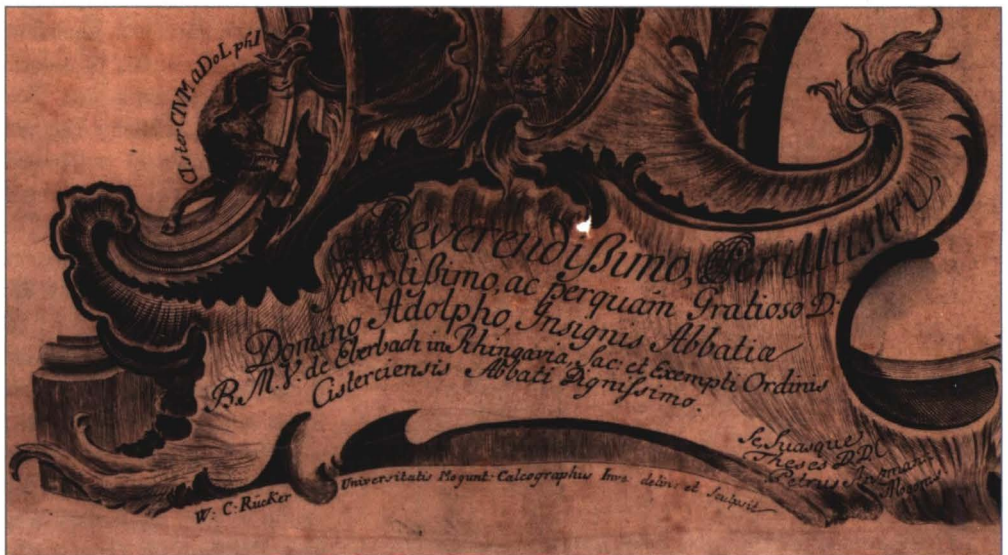 CIsterCIVM, aDoLphI
Reverendißimo, Perillustri,
Amplißimo, ac perquam Gratioso D:
Domino Adolpho, Insignis Abbatiæ
B. M. V. de Eberbach in Rhingavia, Sac: et Exempti Ordinis
Cisterciensis Abbati Dignißimo.
Se Suasque
Theses D. D. C
Petrus
W: C: Rücker Universitatis Mogunt: Calcographus Inv: delin: et Sculpsit